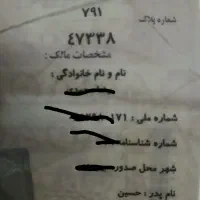 ۷۹۱
شماره پلاک
٤٧٣٣٨
مشخصات مالک :
نام و نام خانوادگی :
شماره ملی : ۱۷۱
شماره شناسنامه
شهر محل صدور
نام پدر : حسین